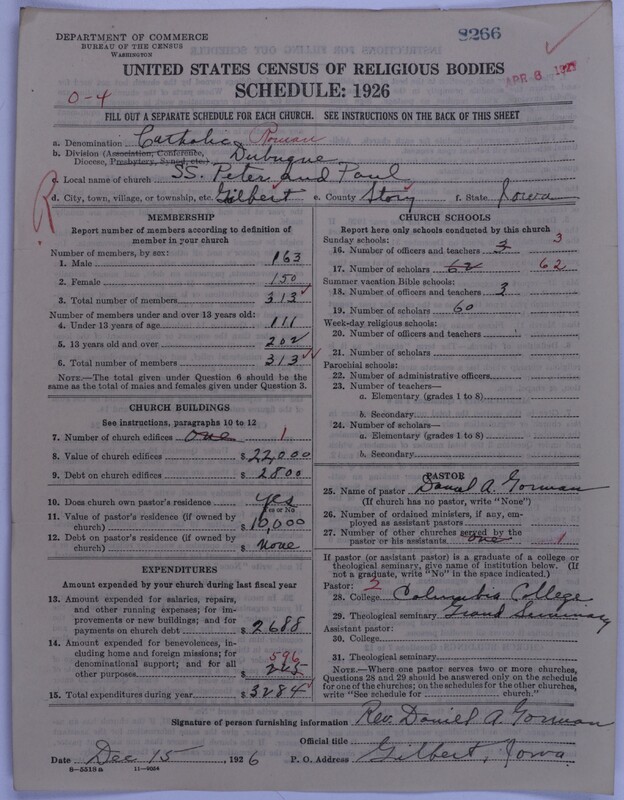 9266
DEPARTMENT OF COMMERCE
BUREAU OF THE CENSUS
WASHINGTON
APR 8 1927
UNITED STATES CENSUS OF RELIGIOUS BODIES
SCHEDULE: 1926
0-4
FILL OUT A SEPARATE SCHEDULE FOR EACH CHURCH. SEE INSTRUCTIONS ON THE BACK OF THIS SHEET
a. Denomination Catholic Roman
b. Division (Association, Conference,
Diocese, Presbytery, Synod, etc.) Dubuque
c. Local name of church SS. Peter and Paul
d. City, town, village, or township, etc. Gilbert e. County Story f. State Iowa
R
MEMBERSHIP
Report number of members according to definition of
member in your church
Number of members, by sex:
1. Male 163
2. Female 150
3. Total number of members 313
Number of members under and over 13 years old:
4. Under 13 years of age 111
5. 13 years old and over 202
6. Total number of members 313
NOTE.—The total given under Question 6 should be the
same as the total of males and females given under Question 3.
CHURCH BUILDINGS
See instructions, paragraphs 10 to 12
7. Number of church edifices one 1
8. Value of church edifices $ 22,000
9. Debt on church edifices $ 2800
10. Does church own pastor's residence yes
Yes or No
11. Value of pastor's residence (if owned by
church) $ 10,000
12. Debt on pastor's residence (if owned by
church) $ None
EXPENDITURES
Amount expended by your church during last fiscal year
13. Amount expended for salaries, repairs,
and other running expenses; for im-
provements or new buildings; and for
payments on church debt $ 2688
14. Amount expended for benevolences, in-
cluding home and foreign missions; for
denominational support; and for all
other purposes $ 596
15. Total expenditures during year $ 3284
CHURCH SCHOOLS
Report here only schools conducted by this church
Sunday schools:
16. Number of officers and teachers 3 3
17. Number of scholars 62 62
Summer vacation Bible schools:
18. Number of officers and teachers 3
19. Number of scholars 60
Week-day religious schools:
20. Number of officers and teachers
21. Number of scholars
Parochial schools:
22. Number of administrative officers
23. Number of teachers—
a. Elementary (grades 1 to 8)
b. Secondary
24. Number of scholars—
a. Elementary (grades 1 to 8)
b. Secondary
PASTOR
25. Name of pastor Daniel A. Gorman
(If church has no pastor, write "None")
26. Number of ordained ministers, if any, em-
ployed as assistant pastors
27. Number of other churches served by the
pastor or his assistants one 1
If pastor (or assistant pastor) is a graduate of a college or
theological seminary, give name of institution below. (If
not a graduate, write "No" in the space indicated.)
Pastor: 2
28. College Columbia College
29. Theological seminary Grand Seminary
Assistant pastor:
30. College
31. Theological seminary
NOTE.—Where one pastor serves two or more churches,
Questions 28 and 29 should be answered only on the schedule
for one of the churches; on the schedules for the other churches,
write "See schedule for church."
Signature of person furnishing information Rev. Daniel A. Gorman
Official title
Date Dec 15, 1926 P. O. Address Gilbert, Iowa
8—5518a 11—9054